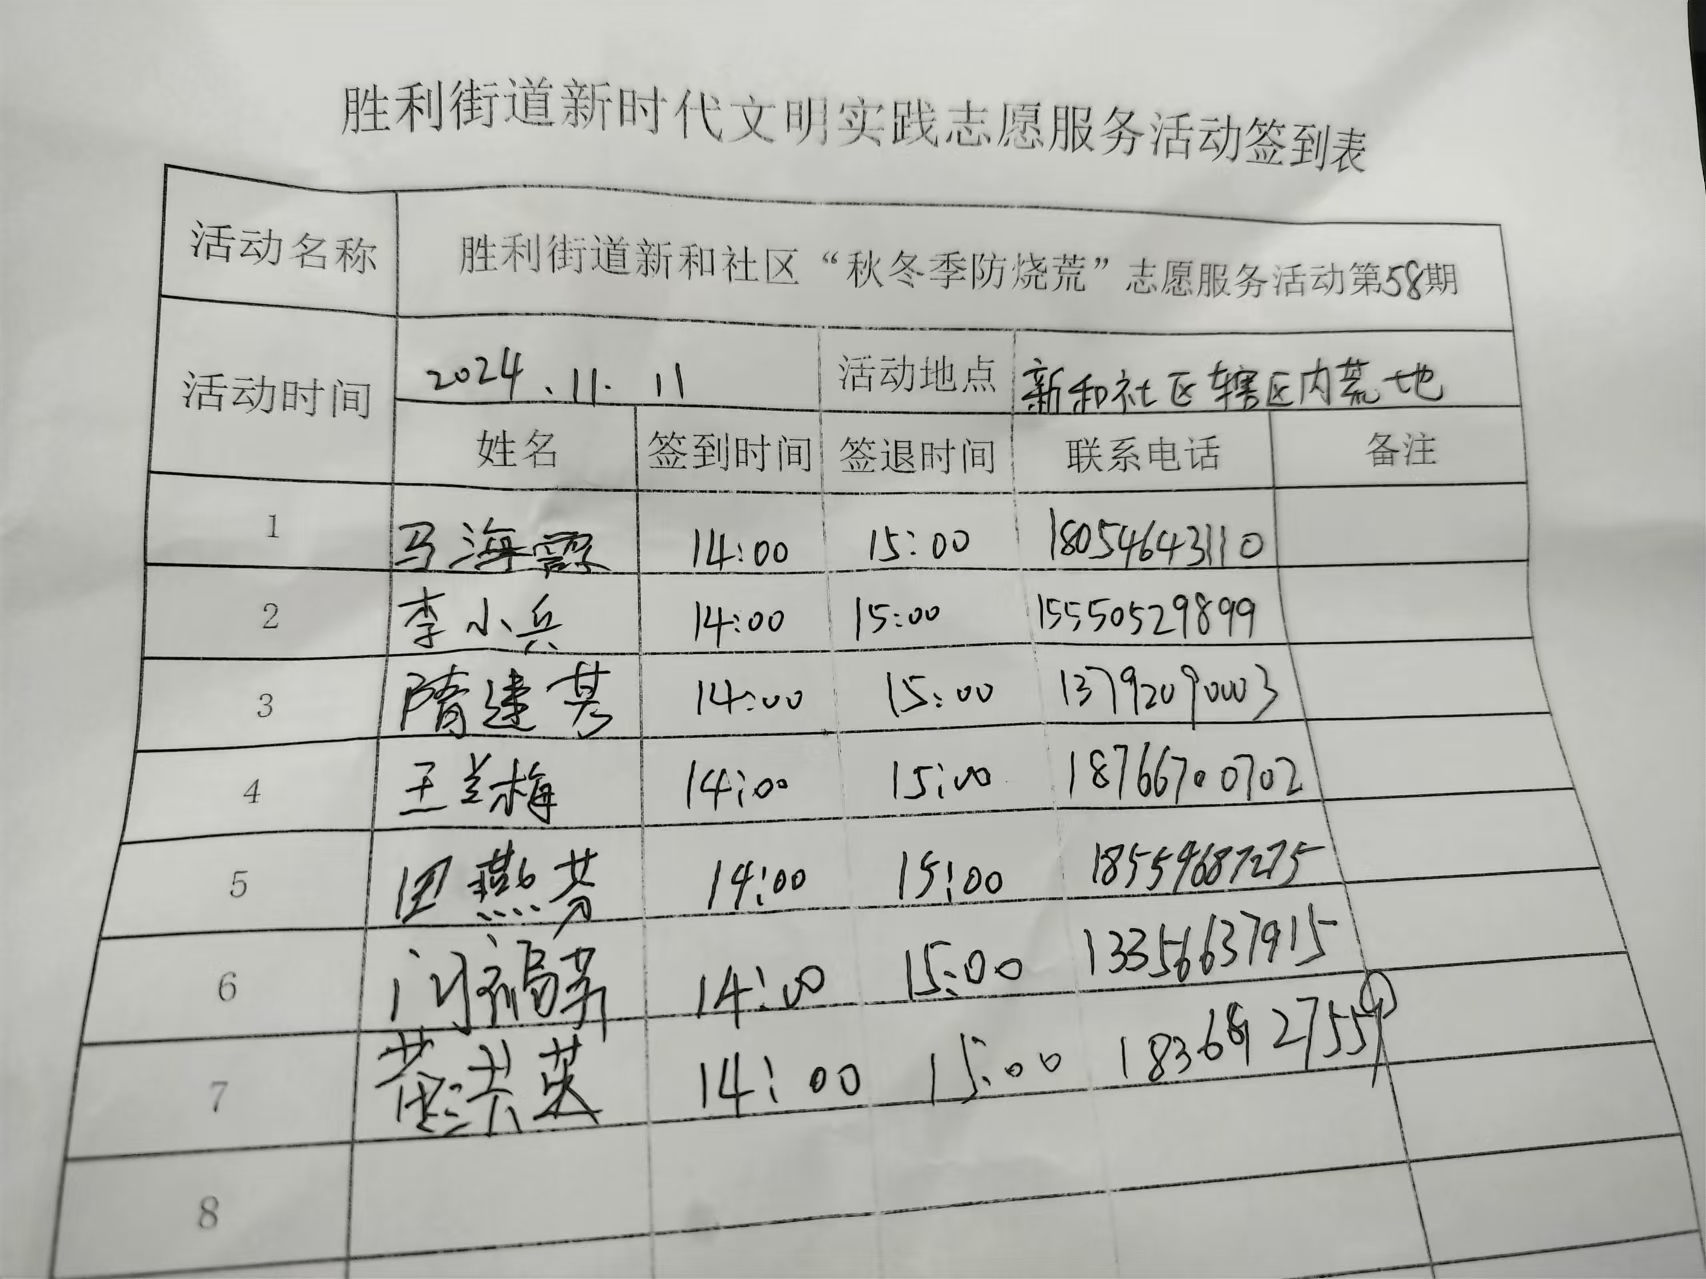 胜利街道新时代文明实践志愿服务活动签到表
活动名称 胜利街道新和社区“秋冬季防烧荒”志愿服务活动第58期
活动时间 2024.11.11 活动地点 新和社区辖区内荒地
姓名 签到时间 签退时间 联系电话 备注
1 马海霞 14:00 15:00 18054643110
2 李小兵 14:00 15:00 15550529899
3 隋建芳 14:00 15:00 13792090003
4 王兰梅 14:00 15:00 18766700702
5 田燕芳 14:00 15:00 18559687275
6 门福革 14:00 15:00 13356637915
7 洪英 14:00 15:00
8